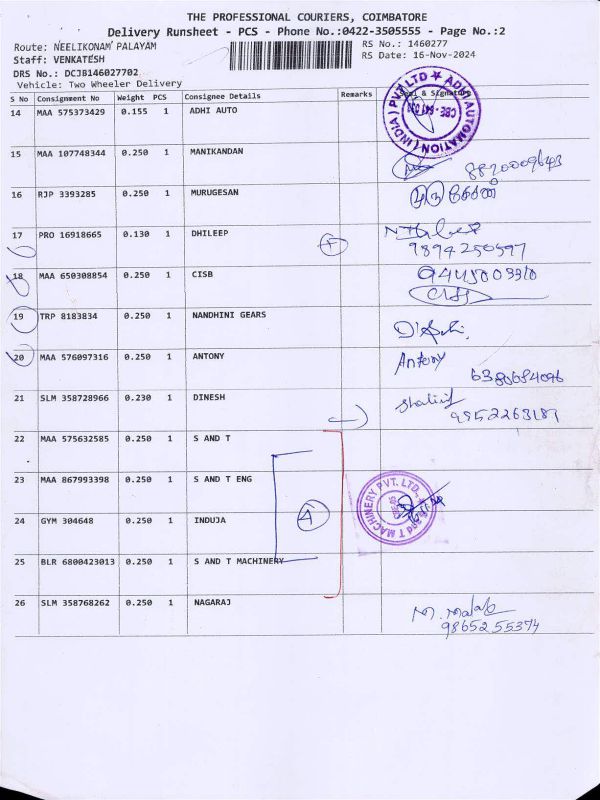 THE PROFESSIONAL COURIERS, COIMBATORE
Delivery Runsheet - PCS - Phone No.:0422-3505555 - Page No.:2
Route: NEELIKONAM PALAYAM
RS No.: 1460277
Staff: VENKATESH
RS Date: 16-Nov-2024
DRS No.: DCJB146027702
Vehicle: Two Wheeler Delivery
S No Consignment No Weight PCS Consignee Details Remarks Seal & Signature
14 MAA 575373429 0.155 1 ADHI AUTO
ADHI AUTOMATION (INDIA) PVT LTD
15 MAA 107748344 0.250 1 MANIKANDAN
16 RJP 3393285 0.250 1 MURUGESAN
17 PRO 16918665 0.130 1 DHILEEP
9894250597
18 MAA 650308854 0.250 1 CISB
19 TRP 8183834 0.250 1 NANDHINI GEARS
20 MAA 576097316 0.250 1 ANTONY Antony
21 SLM 358728966 0.230 1 DINESH
9952263187
22 MAA 575632585 0.250 1 S AND T
23 MAA 867993398 0.250 1 S AND T ENG
24 GYM 304648 0.250 1 INDUJA 4
S and T MACHINERY PVT. LTD.
25 BLR 6800423013 0.250 1 S AND T MACHINERY
26 SLM 358768262 0.250 1 NAGARAJ
9865255374